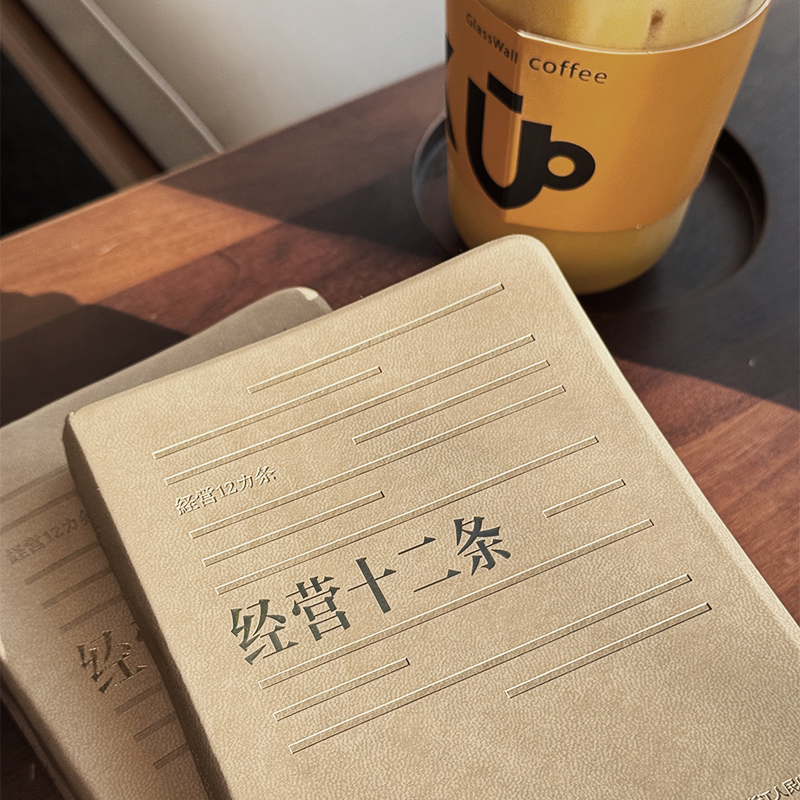 GlassWall coffee
Up
経営12カ条
经营十二条
経営12カ条
经
人民